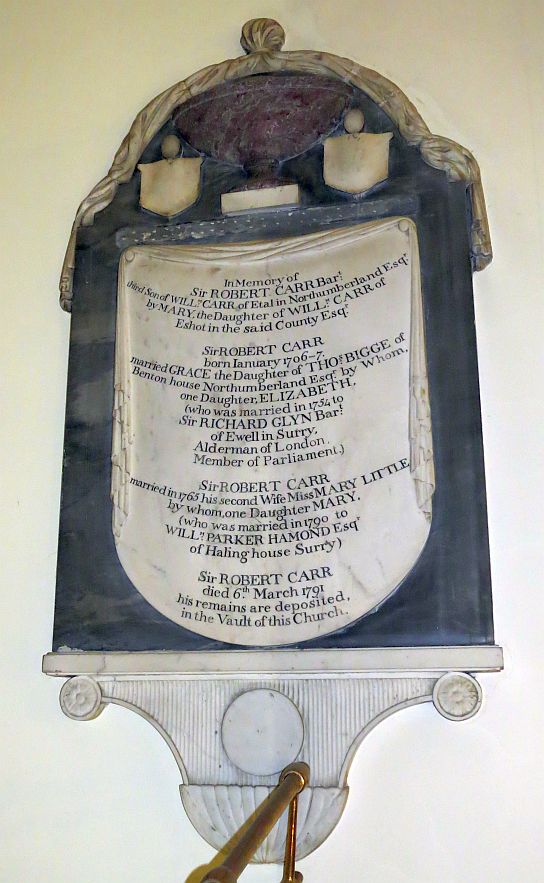 In Memory of
Sir ROBERT CARR Bart.
third Son of WILLm. CARR of Etal in Northumberland Esqr.
by MARY, the Daughter of WILLm. CARR of
Eshot in the said County Esqr.
Sir ROBERT CARR
born January 1706-7.
married GRACE the Daughter of THOs. BIGGE of
Benton house Northumberland Esqr. by Whom,
one Daughter, ELIZABETH,
(who was married in 1754 to
Sir RICHARD GLYN Bart.
of Ewell in Surry,
Alderman of London,
Member of Parliament.)
Sir ROBERT CARR
married in 1763 his second Wife Miss MARY LITTLE
by whom, one Daughter MARY,
(who was married in 1790 to
WILLm. PARKER HAMOND Esqr.
of Haling house Surry)
Sir ROBERT CARR
died 6th. March 1791
his remains are deposited,
in the Vault of this Church.